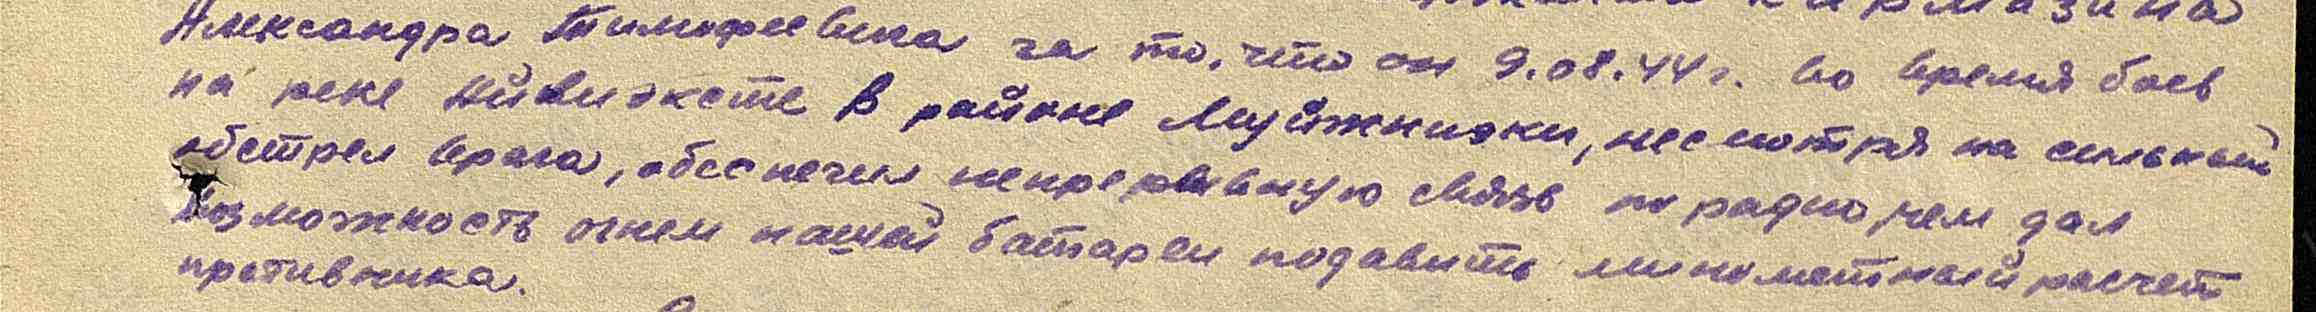 Кармазина
Александра Тимофеевича за то, что он 9.08.44 г. во время боев
на реке Айвиэксте в районе Муйжниэки, несмотря на сильный
обстрел врага, обеспечил непрерывную связь по радио, чем дал
возможность огнем нашей батареи подавить минометный расчет
противника.